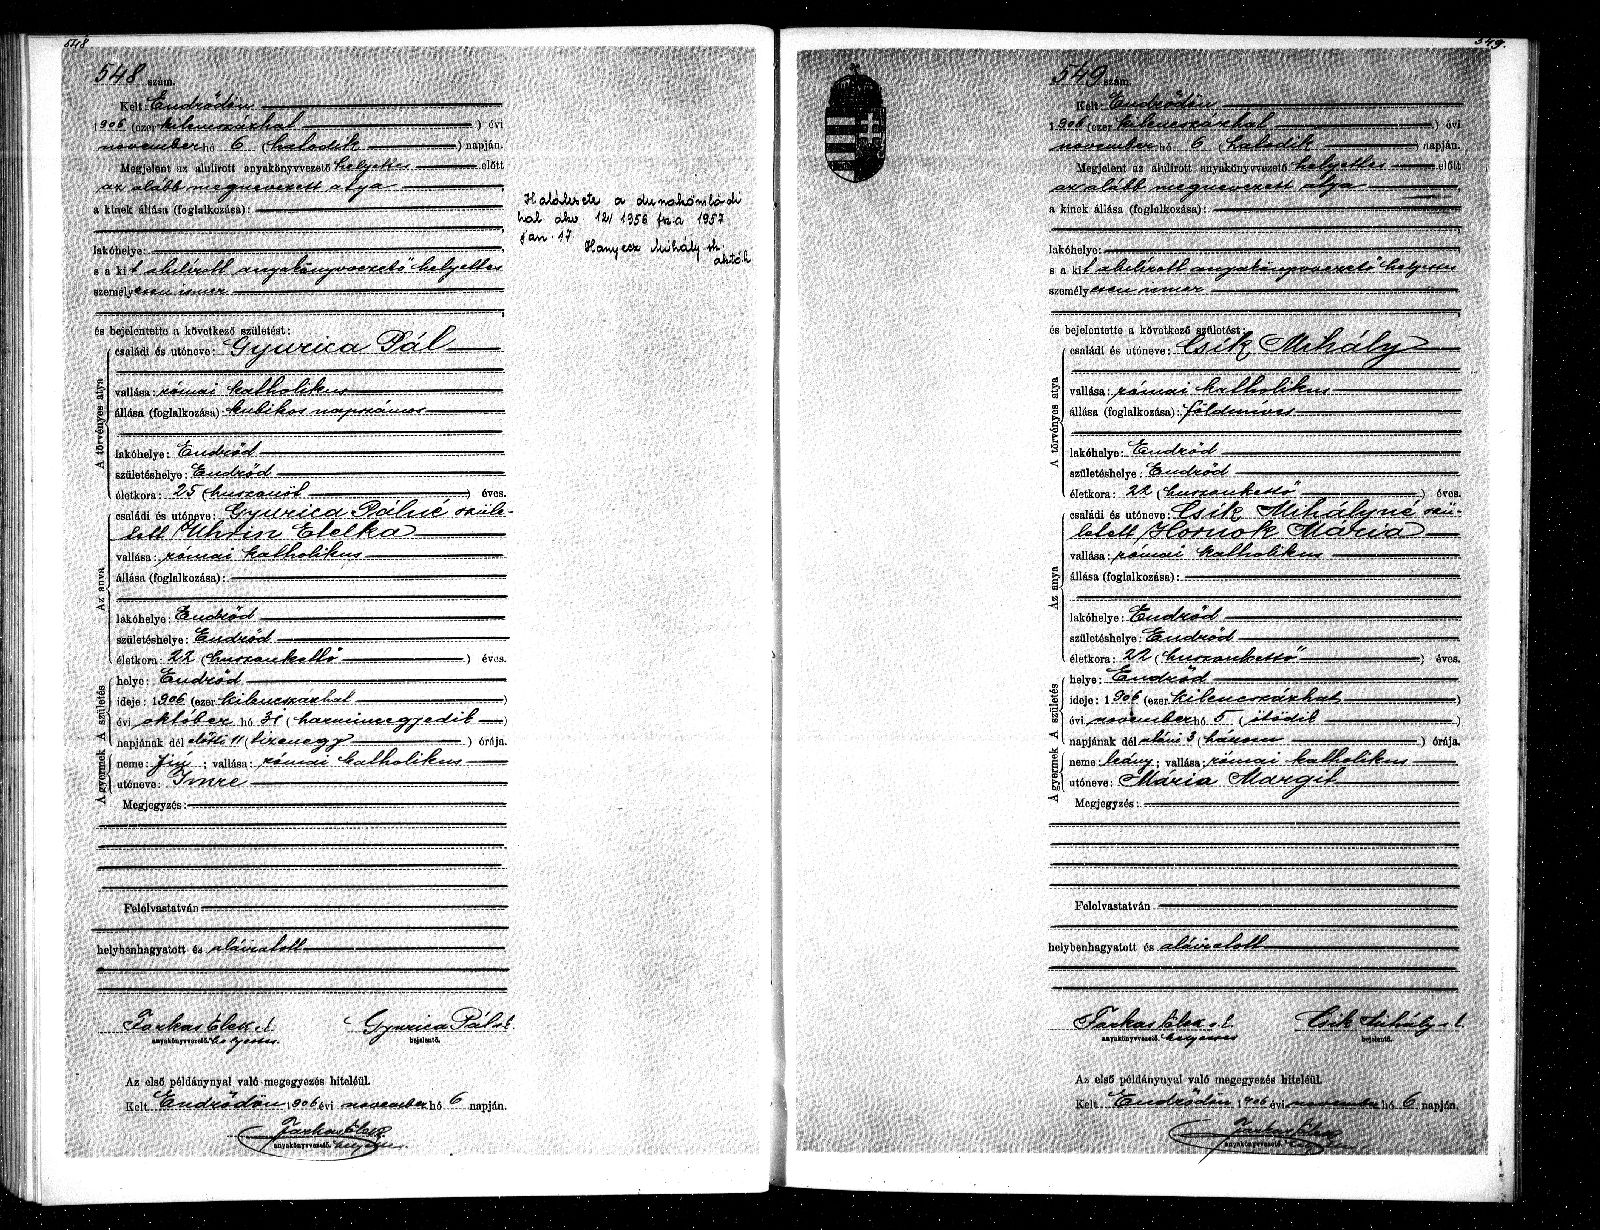 548
548 szám.
Kelt: Endrődön
1906 (ezer kilencszázhat) évi
november hó 6 (hatodik) napján.
Megjelent az alulírott anyakönyvvezető helyettes előtt
az alább megnevezett atya
a kinek állása (foglalkozása):
lakóhelye:
s a kit alulírott anyakönyvvezető helyettes
személyesen ismer
és bejelentette a következő születést:
A törvényes atya
családi és utóneve: Gyurica Pál
vallása: római katholikus
állása (foglalkozása) kubikos napszámos
lakóhelye: Endrőd
születéshelye: Endrőd
életkora: 25 (huszonöt) éves.
Az anya
családi és utóneve: Gyurica Pálné szüle-
tett Uhrin Etelka
vallása: római katholikus
állása (foglalkozása):
lakóhelye: Endrőd
születéshelye: Endrőd
életkora: 22 (huszonkettő) éves.
A születés
helye: Endrőd
ideje: 1906 (ezer kilencszázhat)
évi október hó 31 (harmincegyedik)
napjának dél előtti 11 (tizenegy) órája.
A gyermek
neme: fiú; vallása: római katholikus
utóneve: Imre
Megjegyzés:
Felolvastatván
helybenhagyatott és aláíratott
Farkas Elek Gyurica Pál
anyakönyvvezető helyettes bejelentő.
Az első példánynyal való megegyezés hiteléül.
Kelt Endrődön 1906 évi november hó 6 napján.
Farkas Elek
anyakönyvvezető helyettes
Halálesete a
hal. akv 12/ 1956 1957
jan. 17
Hanyecz Mihály
549.
549 szám.
Kelt: Endrődön
1906 (ezer kilencszázhat) évi
november hó 6 (hatodik) napján.
Megjelent az alulírott anyakönyvvezető helyettes előtt
az alább megnevezett atya
a kinek állása (foglalkozása):
lakóhelye:
s a kit alulírott anyakönyvvezető helyettes
személyesen ismer
és bejelentette a következő születést:
A törvényes atya
családi és utóneve: Csik Mihály
vallása: római katholikus
állása (foglalkozása): földmíves
lakóhelye: Endrőd
születéshelye: Endrőd
életkora: 22 (huszonkettő) éves.
Az anya
családi és utóneve: Csik Mihályné szü-
letett Hornok Mária
vallása: római katholikus
állása (foglalkozása):
lakóhelye: Endrőd
születéshelye: Endrőd
életkora: 22 (huszonkettő) éves.
A születés
helye: Endrőd
ideje: 1906 (ezer kilencszázhat
évi november hó 5 (ötödik)
napjának dél utáni 3 (három) órája.
A gyermek
neme leány; vallása: római katholikus
utóneve: Mária Margit
Megjegyzés:
Felolvastatván
helybenhagyatott és aláíratott
Farkas Elek Csik Mihály
anyakönyvvezető. helyettes bejelentő.
Az első példánynyal való megegyezés hiteléül.
Kelt Endrődön 1906 évi november hó 6 napján.
Farkas Elek
anyakönyvvezető. helyettes